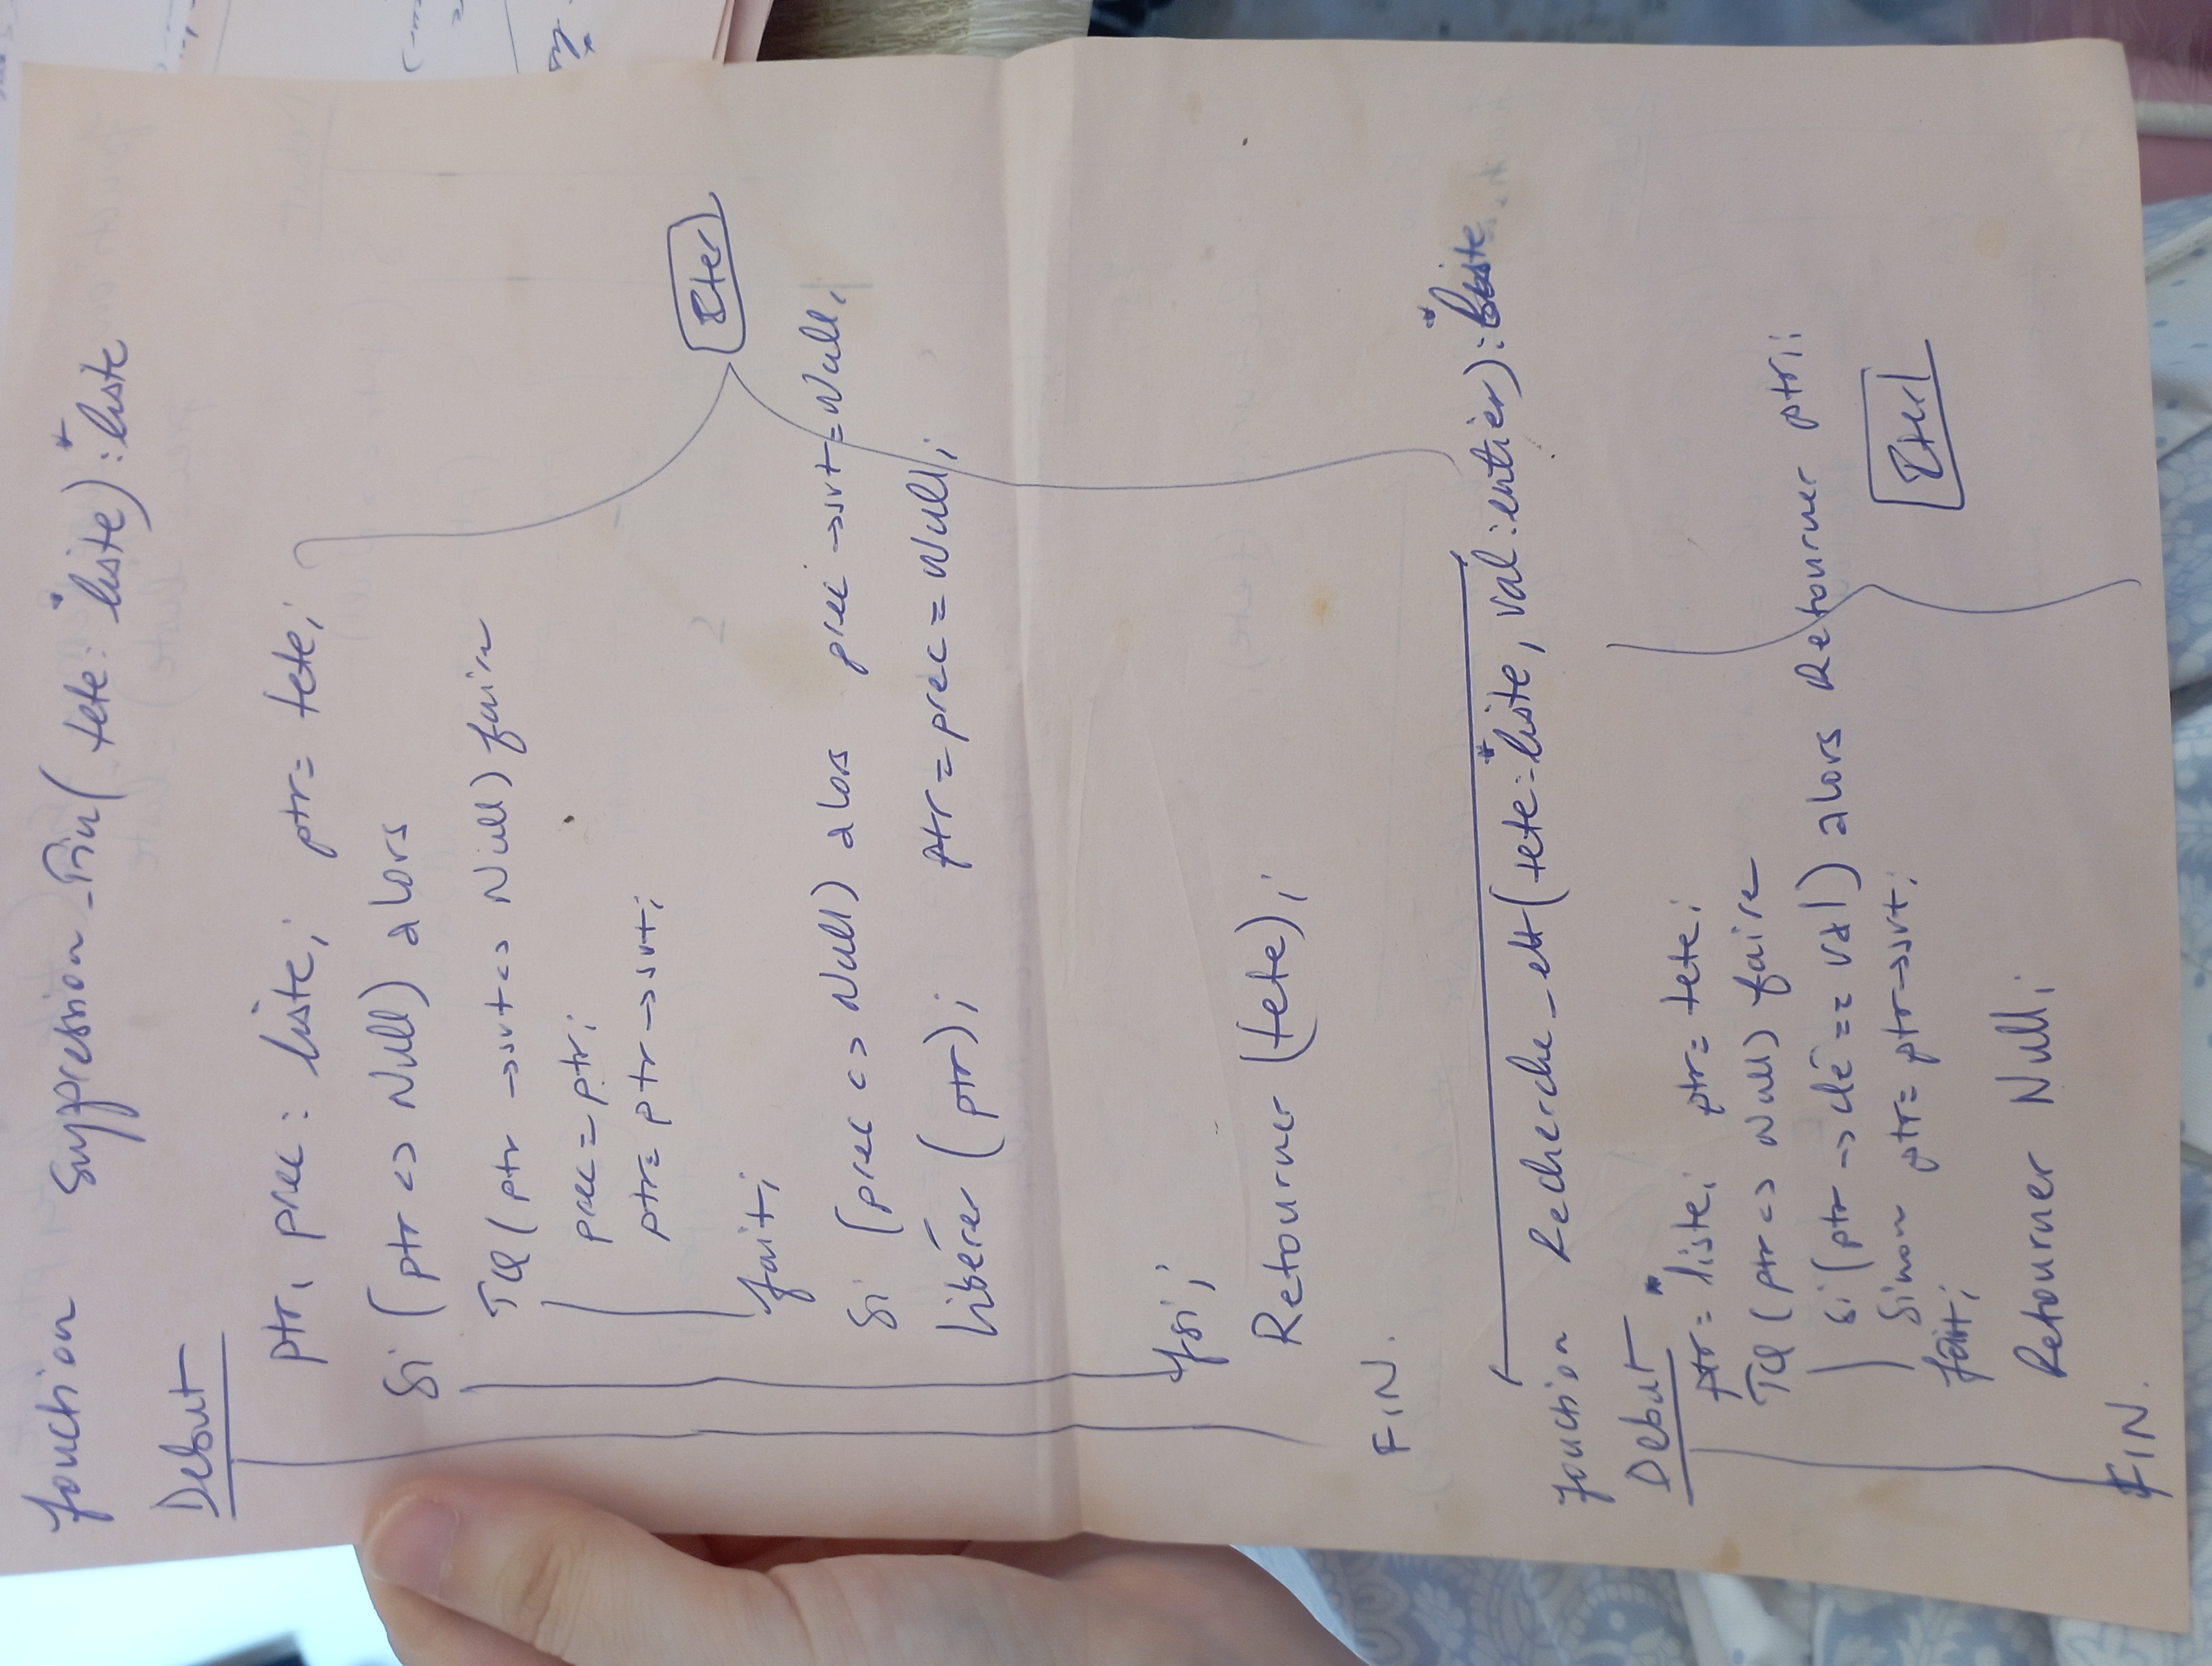 fonction Suppression_Fin( tete: *liste): *liste
Debut
ptr, prec : liste; ptr= tete;
Si (ptr <> Null) alors
TQ (ptr →svt<> Null) faire
prec = ptr;
ptr= ptr →svt;
fait;
Iter
Si (prec <> Null) alors prec →svt=Null;
libérer (ptr); ptr = prec = Null;
fsi;
Retourner (tete);
FIN.
fonction Recherche_elt(tete: *liste, val : entier): *liste
Debut
ptr= *liste; ptr= tete;
TQ (ptr <> Null) faire
Si (ptr →clé == val) alors Retourner ptr;
Sinon ptr= ptr→svt;
fait;
Iter
Retourner Null;
FIN.